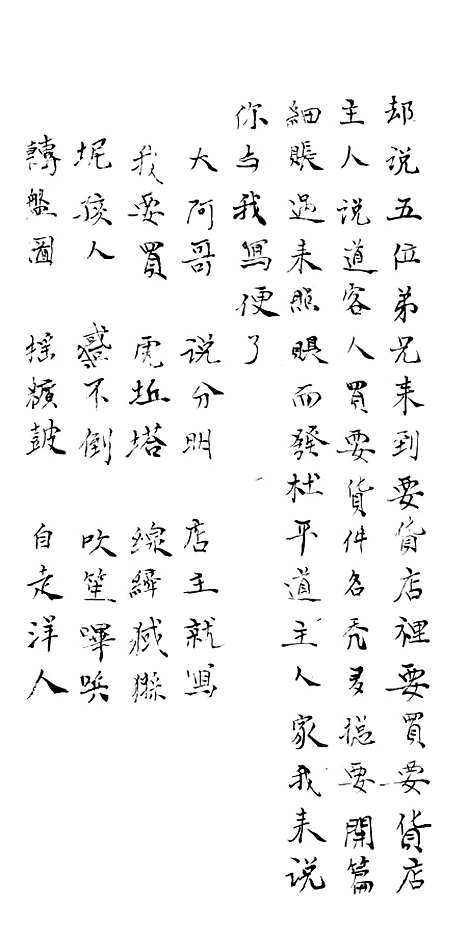 却说五位弟兄来到耍货店裡要買耍货店
主人说道客人買耍货件名秃多揔要開篇
細賬過来照賬而發杜平道主人家我来说
你与我寫便了
大阿哥 说分明 店主就寫
我要買 虎坵塔 綜繂猢猻
坭孩人 搬不倒 吹笙嗶唄
轉盤圖 摇糖鼓 自走洋人